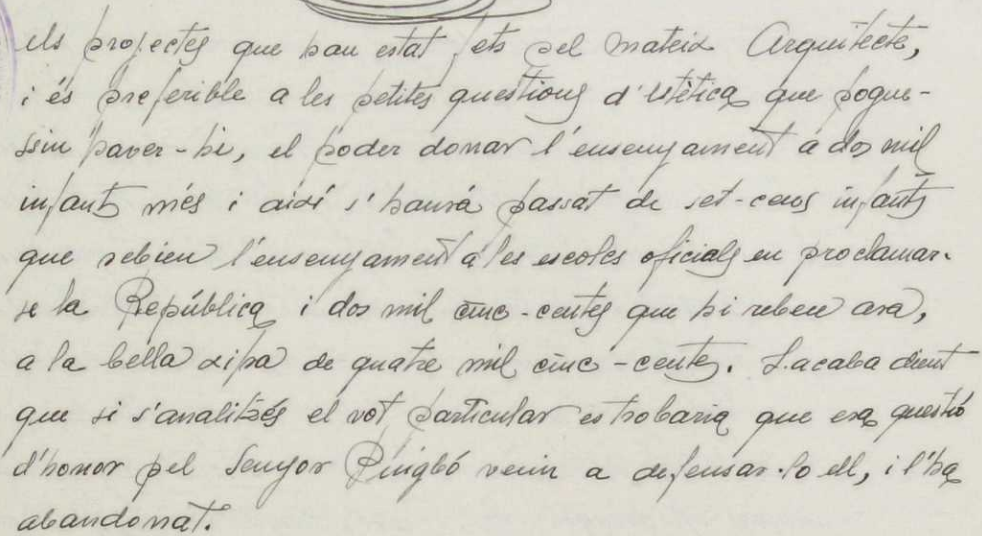 els projectes que han estat fets pel mateix Arquitecte,
i és preferible a les petites questions d'estètica que pogue-
ssin haver-hi, el poder donar l'ensenyament a dos mil
infants més i aixi s'haurà passat de set-cens infants
que rebien l'ensenyament a les escoles oficials en proclamar-
se la República i dos mil cinc-centes que hi reben ara,
a la bella xifra de quatre mil cinc-centes. I acaba dient
que si s'analitzés el vot particular es trobaria que era questió
d'honor pel Senyor Puigbó venir a defensar-lo ell, i l'ha
abandonat.